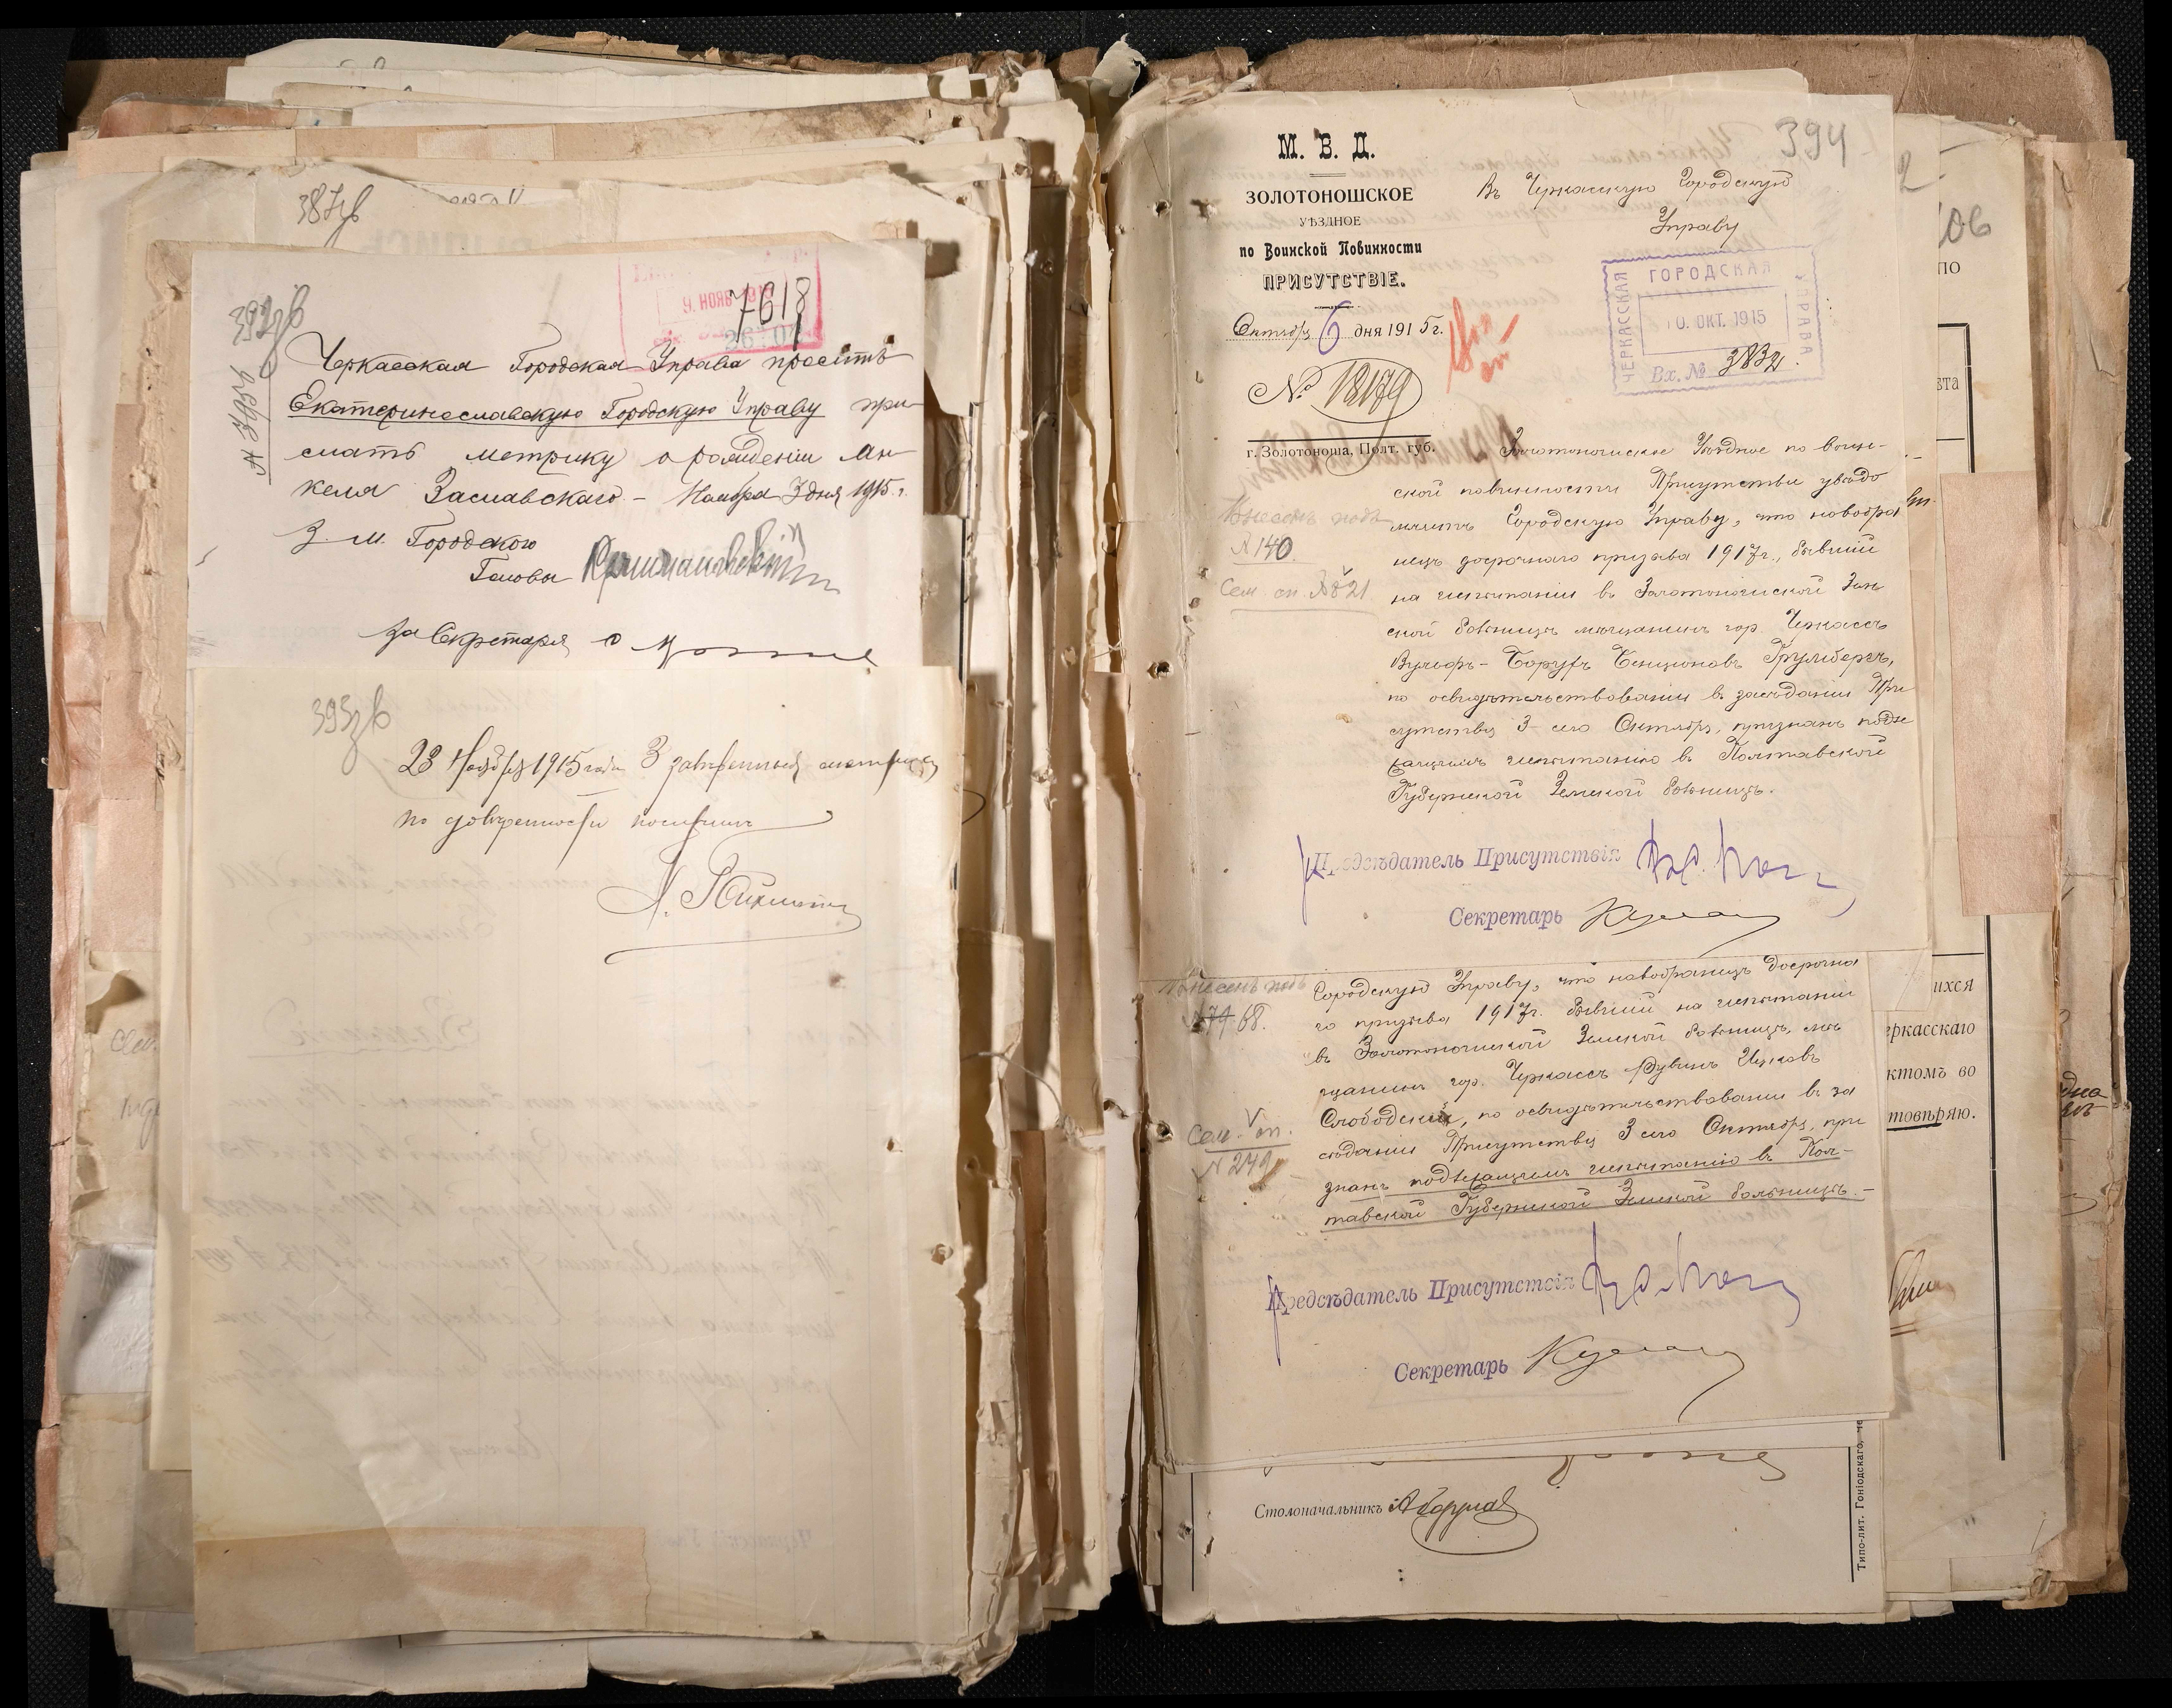 387зв
392зв
№ 3495
9. НОЯБ 1915
7618
Черкасская Городская Управа проситъ
Екатеринославскую Городскую Управу при-
слать метрику о рождении Ан-
келя Заславскаго – Ноября 3 дня 1915 г.
З. м. Городского
Головы
За Секретаря
393зв
23 Ноября 1915 года 3
по довѣренности получилъ
394
М. В. Д.
ЗОЛОТОНОШСКОЕ
УѢЗДНОЕ
по Воинской Повинности
ПРИСУТСТВІЕ.
Октября 6 дня 1915 г.
№ 18179
г. Золотоноша, Полт. губ.
Въ Черкасскую Городскую
Управу
ЧЕРКАССКАЯ ГОРОДСКАЯ УПРАВА
10. ОКТ. 1915
Вх. № 3832.
Золотоношское Уѣздное по воин-
ской повинности Присутствіе увѣдо
мляетъ Городскую Управу, что новобра
нецъ досрочнаго призыва 1917 г., бывшій
на испытаніи въ Золотоношской Зем
ской больницѣ мѣщанинъ гор. Черкассъ
Вульфъ-Борухъ Бенціоновъ Грумбергъ,
по освидѣтельствованіи въ засѣданіи При
сутствія 3-его Октября, признанъ подле
жащимъ испытанію въ Полтавской
Губернской Земской больницѣ.
Внесенъ подъ
№ 140.
Сем. сп. № 821
Предсѣдатель Присутствія
Секретарь
Внесенъ подъ
№ 74 68.
Сем. сп.
№ 249
Городскую Управу, что новобранецъ досрочна
го призыва 1917 г. бывшій на испытаніи
въ Золотоношской Земской больницѣ, мѣ
щанинъ гор. Черкассъ Рувинъ Ицковъ
Слободскій, по освидѣтельствованіи въ за
сѣданіи Присутствія 3 сего Октября, при
знанъ подлежащимъ испытанію въ Пол-
тавской Губернской Земской больницѣ.–
Предсѣдатель Присутствія
Секретарь
Столоначальникъ
Типо-лит. Гоніодскаго,
2
106
ПО
ихся
еркасскаго
ктомъ во
товпряю.